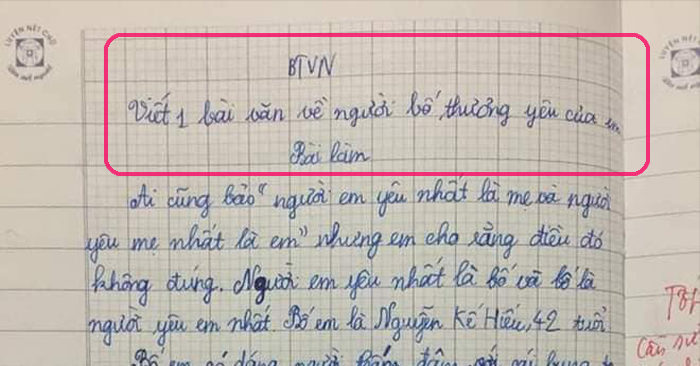 LUYỆN NÉT CHỮ
BTVN
Viết 1 bài văn về người bố thương yêu của em
Bài làm
Ai cũng bảo "người em yêu nhất là mẹ và người
yêu mẹ nhất là em" nhưng em cho rằng điều đó
không đúng. Người em yêu nhất là bố và bố là
người yêu em nhất. Bố em là Nguyễn Kế Hiếu, 42 tuổi
Bố em có dáng người
LUYỆN NÉT